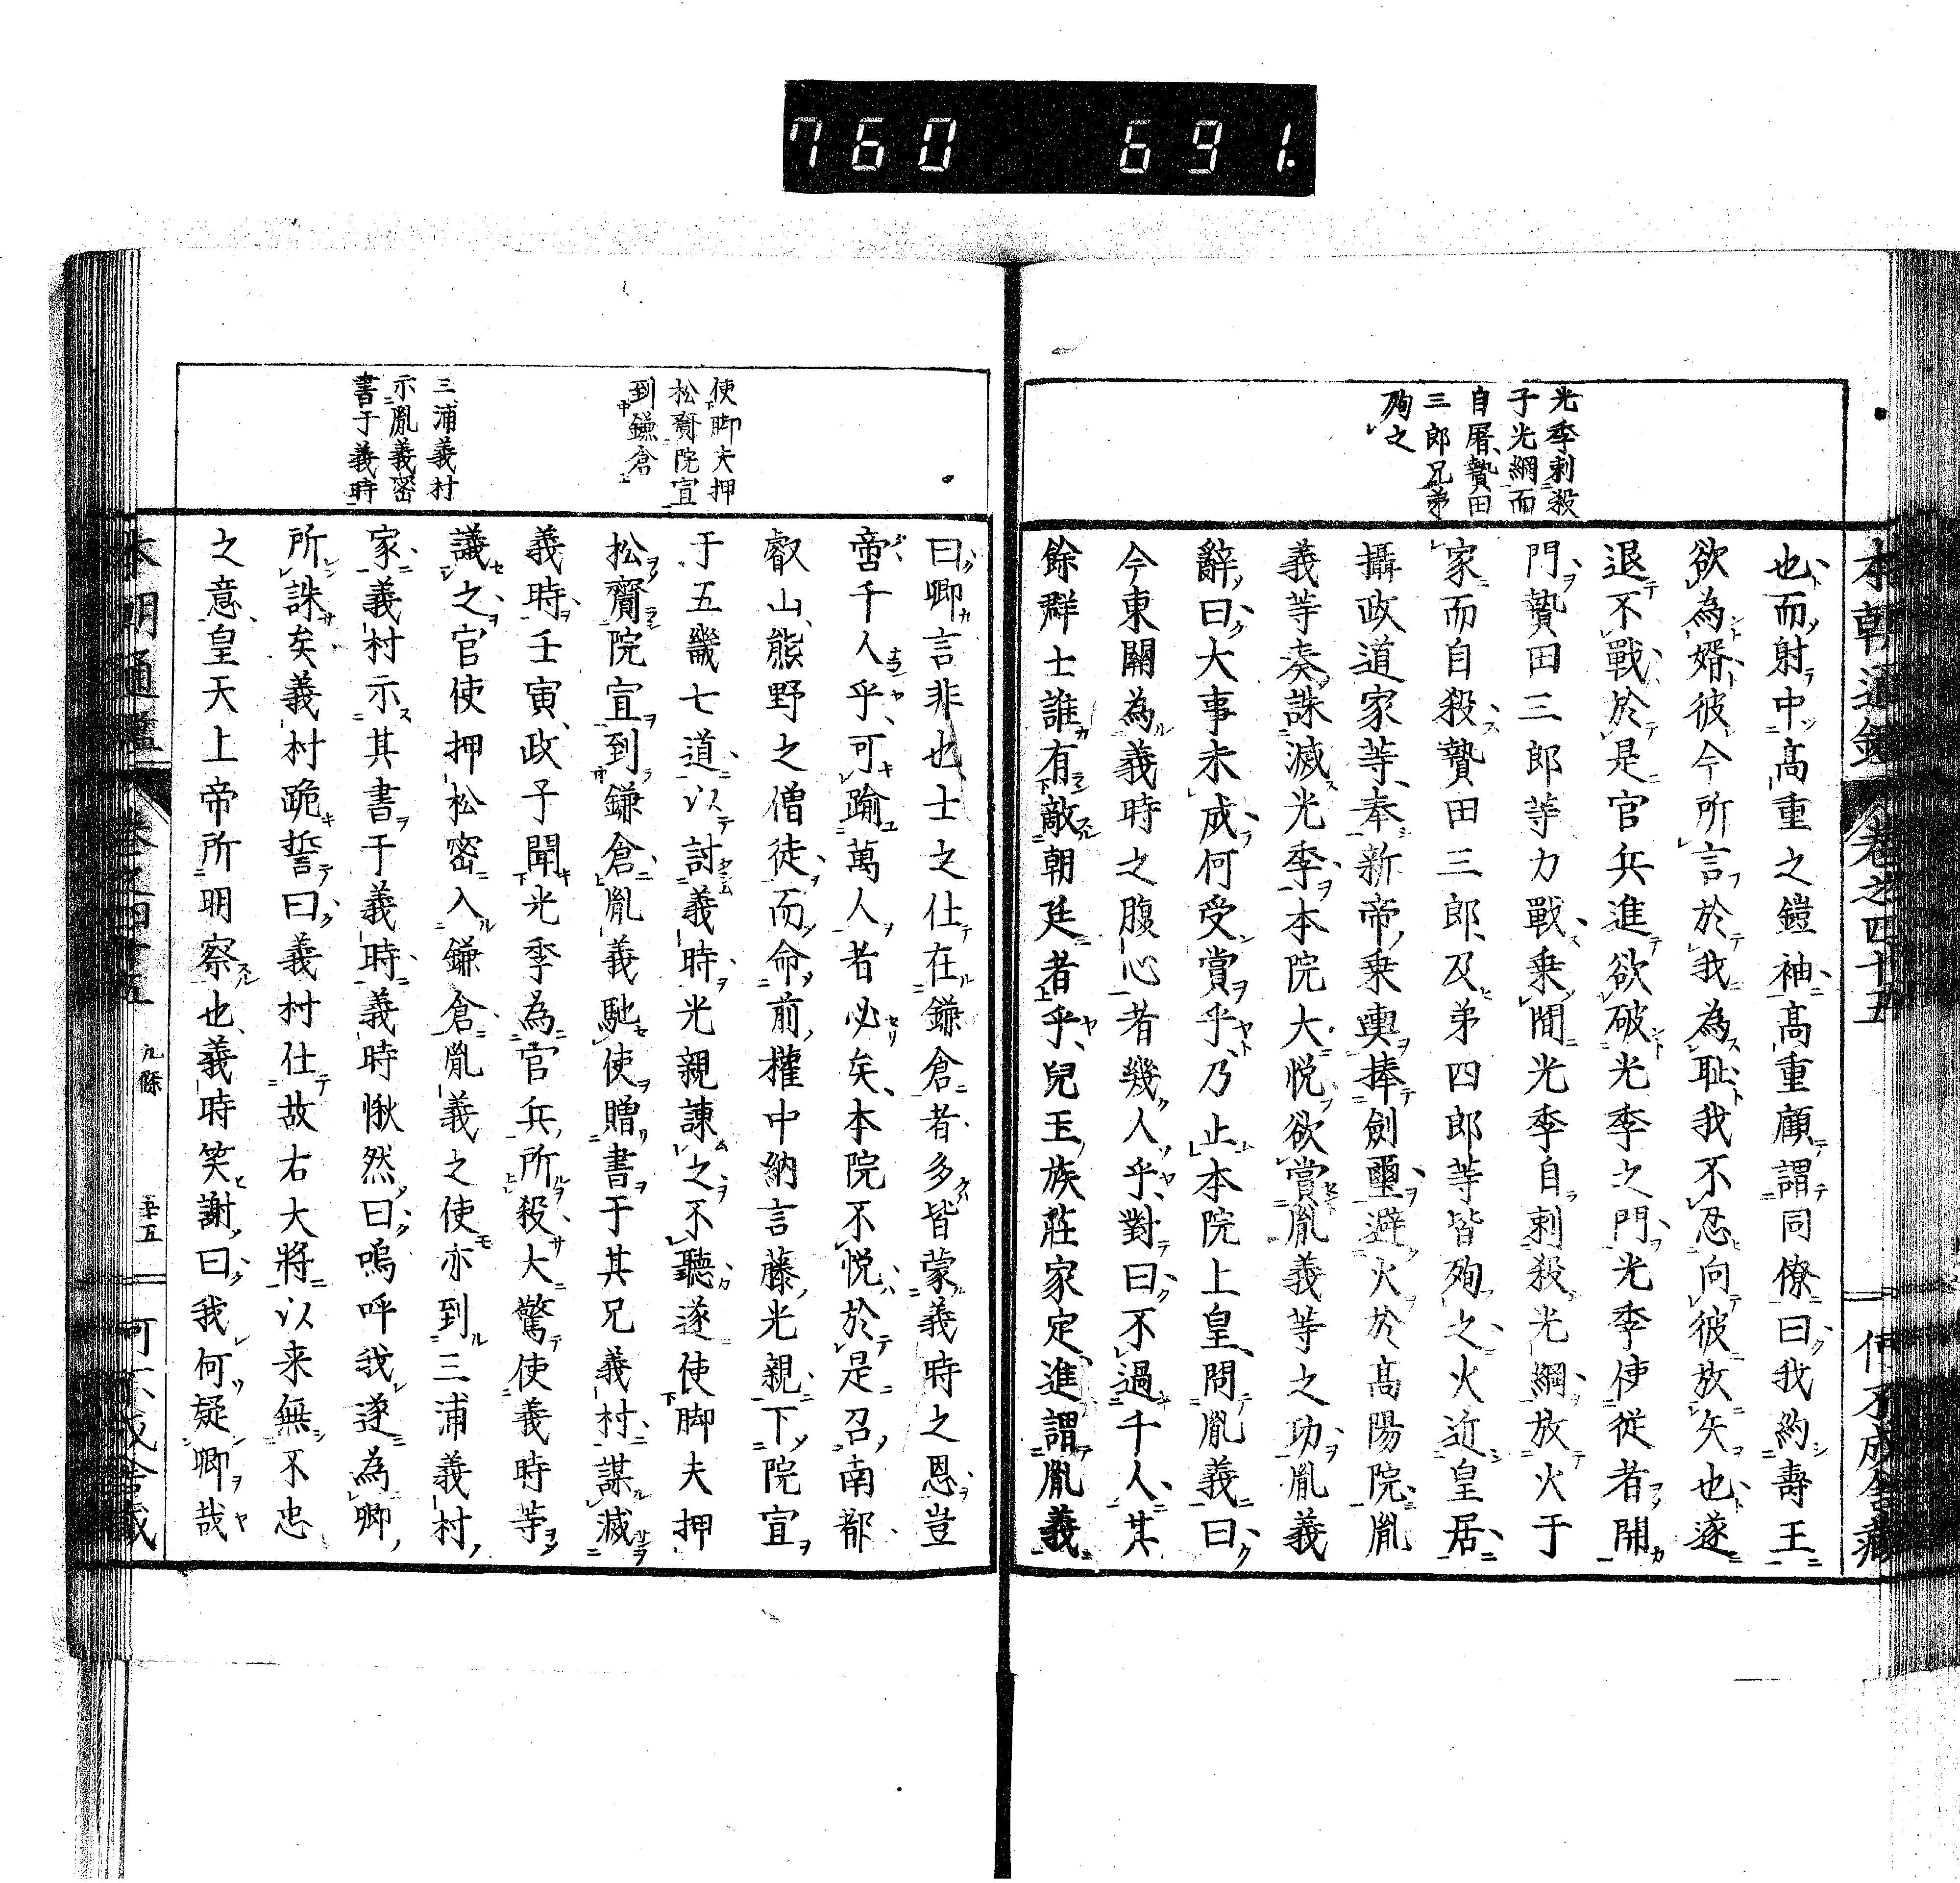 760 691.
本朝通鑑 卷之四十五 何不成舍藏
光季刺殺
子光綱而
自屠贄田
三郎兄弟
殉之
也而射中髙重之鎧袖髙重顧謂同僚曰我約壽王
欲為婿彼今所言於我為耻我不忍向彼放矢也遂
退不戰於是官兵進欲破光季之門光季使従者開
門贄田三郎等力戰乗間光季自刺殺光綱放火于
家而自殺贄田三郎及弟四郎等皆殉之火近皇居
攝政道家等奉新帝乗輿捧劍璽避火於髙陽院胤
義等奏誅滅光季本院大悦欲賞胤義等之功胤義
辭曰大事未成何受賞乎乃止本院上皇問胤義曰
今東關為義時之腹心者幾人乎對曰不過千人其
餘群士誰有敵朝廷者乎兒玉族莊家定進謂胤義
使脚夫押
松齎院宣
到鎌倉
三浦義村
示胤義密
書于義時
曰卿言非也士之仕在鎌倉者多皆蒙義時之恩豈
啻千人乎可踰萬人者必矣本院不悦於是召南都
叡山熊野之僧徒而命前權中納言藤光親下院宣
于五畿七道以討義時光親諫之不聽遂使脚夫押
松齎院宣到鎌倉胤義馳使贈書于其兄義村謀滅
義時壬寅政子聞光季為官兵所殺大驚使義時等
議之官使押松密入鎌倉胤義之使亦到三浦義村
家義村示其書于義時義時愀然曰嗚呼我遂為卿
所誅矣義村跪誓曰義村仕故右大將以来無不忠
之意皇天上帝所明察也義時笑謝曰我何疑卿哉
本朝通鑑 卷之四十五 九條 五 何不成舍藏